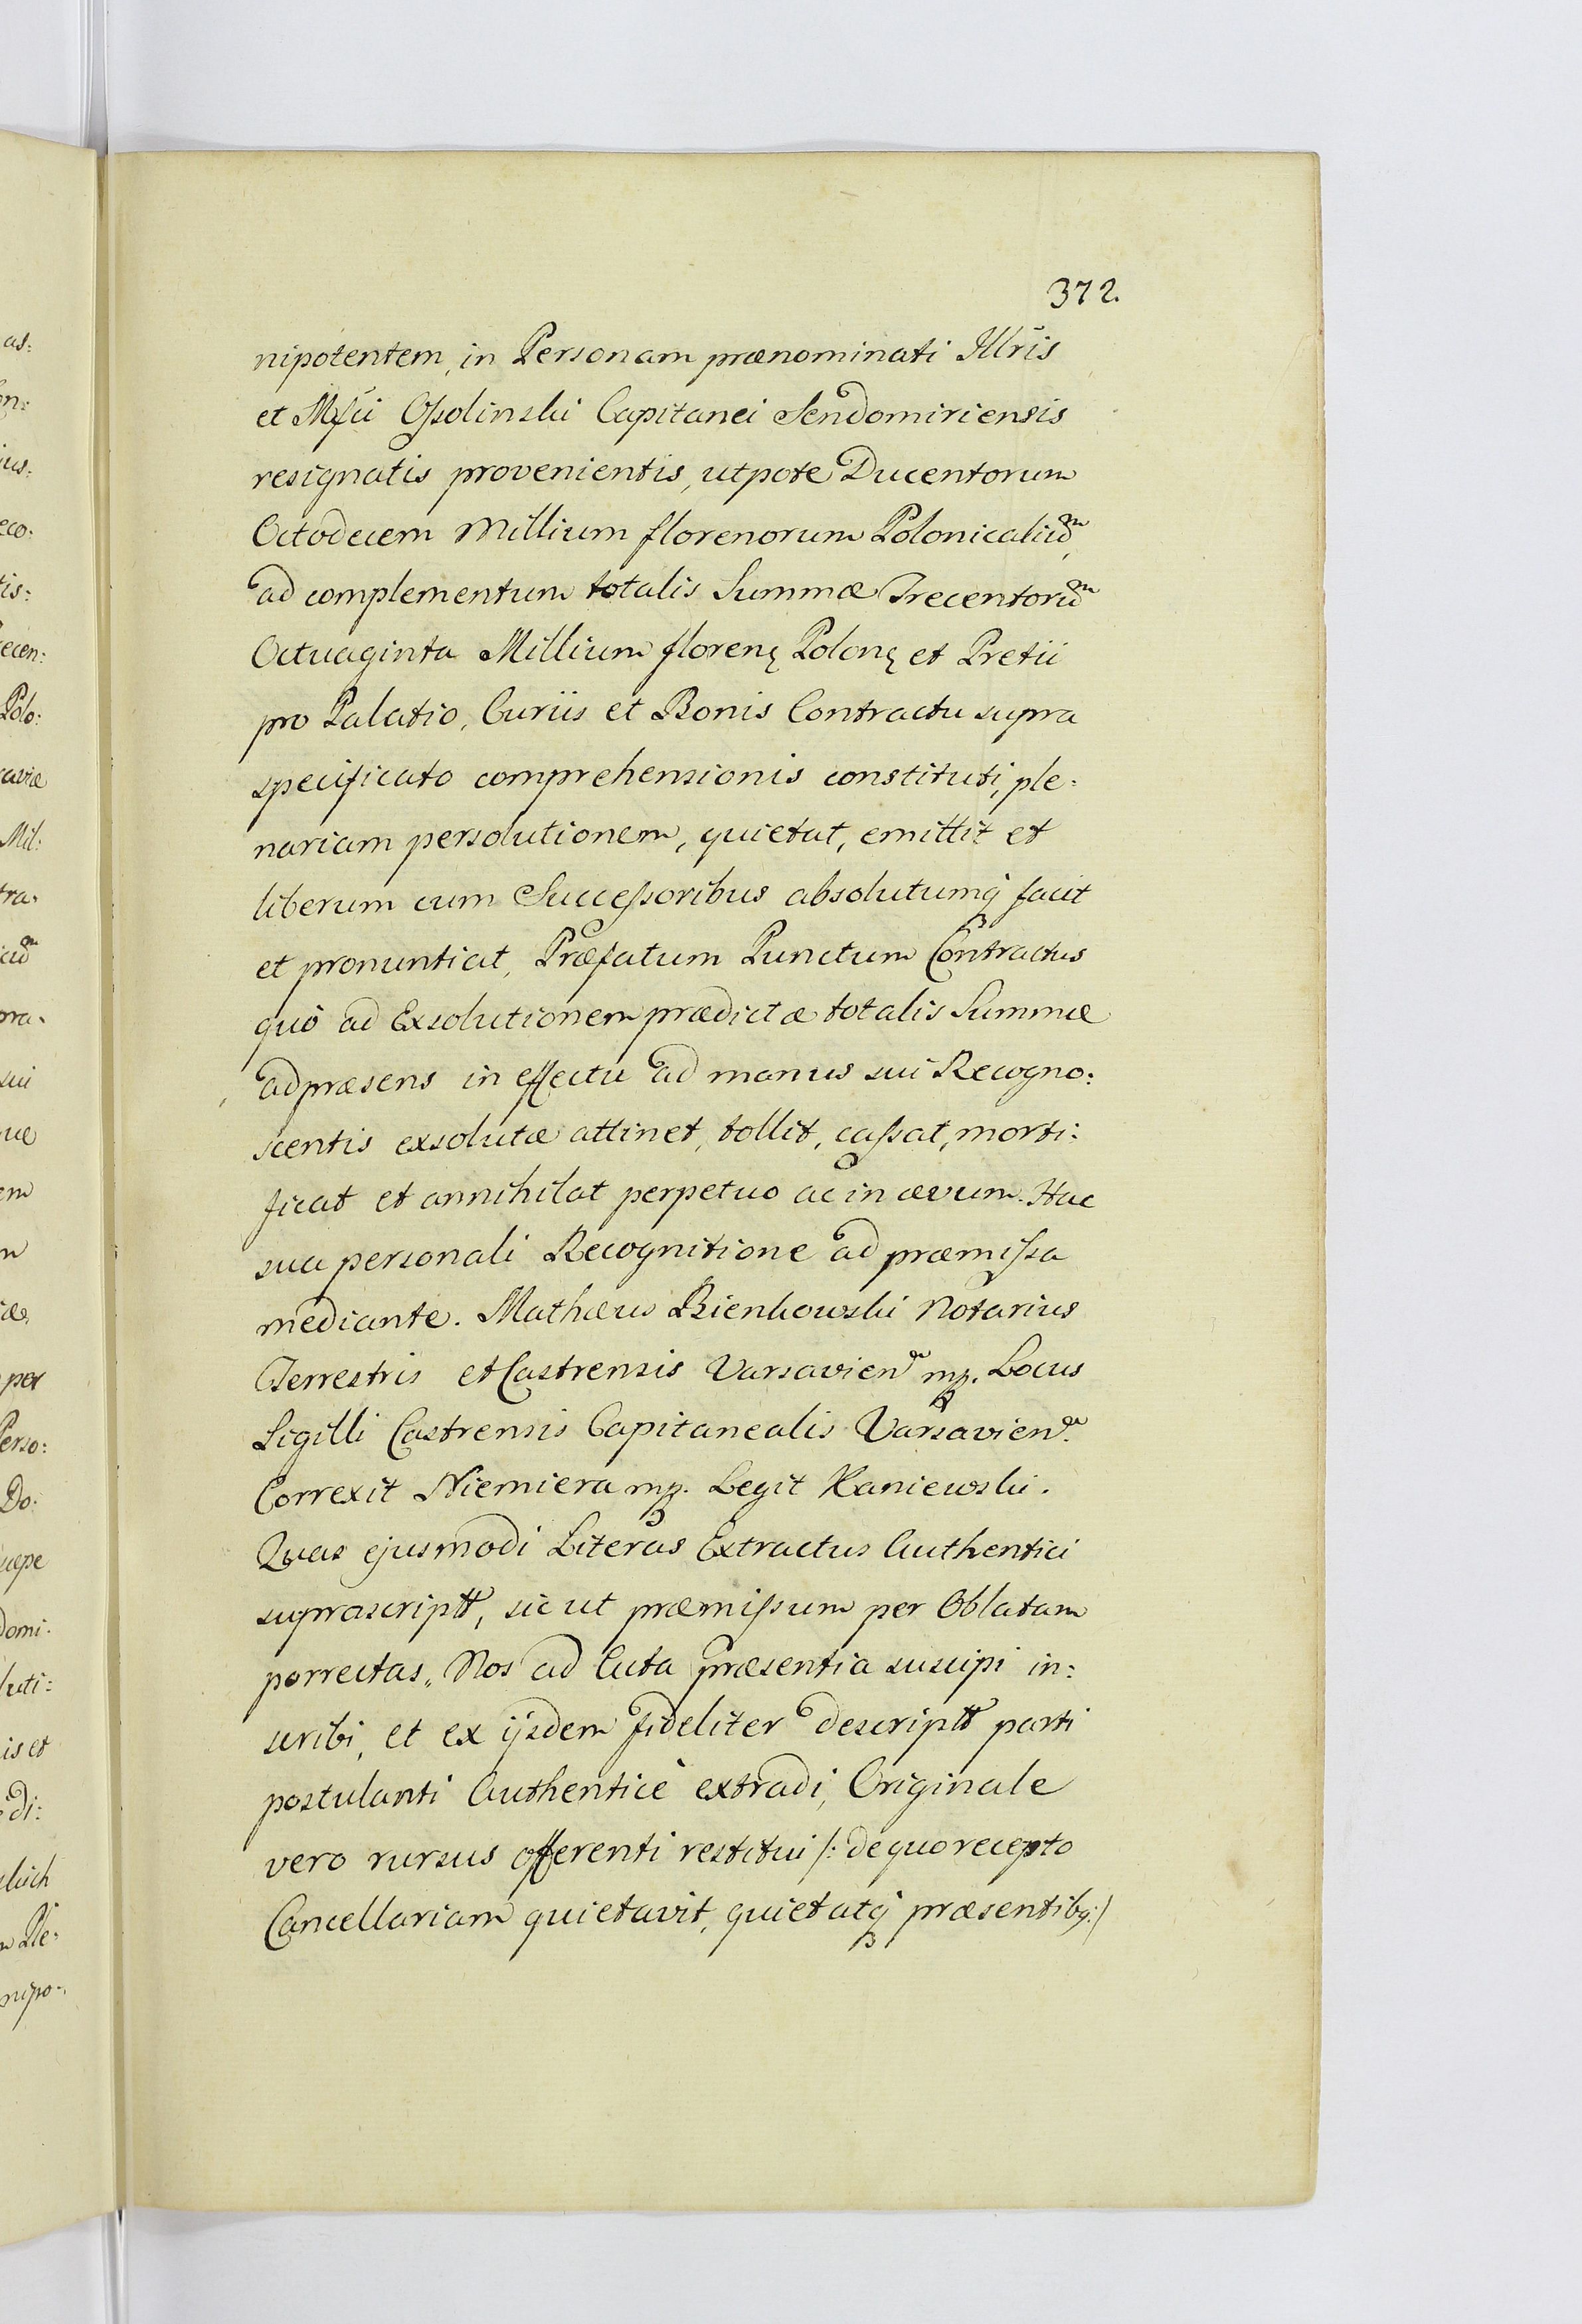 372.
nipotentem, in Personam prænominati Illris
et Mfci Ossolinski Capitanei Sendomiriensis
resignatis provenientis, utpote Ducentorum
Octodecem Millium florenorum Polonicaliũm,
ad complementum totalis Summæ Trecentorũm
Octuaginta Millium florenꝫ Polonꝫ et Pretii
pro Palatio, Curiis et Bonis Contractu supra
specificato comprehensionis constituti, ple:
nariam persolutionem, quietat, emittit et
liberum cum Successoribus absolutumqꝫ facit
et pronuntiat, Præfatum Punctum Contractus
quò ad Exsolutionem prædictæ totalis Summæ
ad præsens in effectu ad manus sui Recogno:
scentis exsolutæ attinet, tollit, cassat, morti:
ficat et annihilat perpetuo ac in ævum. Hac
sua personali Recognitione ad præmissa
mediante. Mathæus Bienkowski Notarius
Terrestris et Castrensis Varsavien mp. Locus
Sigilli Castrensis Capitanealis Varsavien.
Correxit Niemiera mp. Legit Kaniewski.
Quas ejusmodi Literas Extractus Authentici
suprascriptt, sic ut præmissum per Oblatam
porrectas, Nos ad Acta præsentia suscipi in:
scribi, et ex ijsdem fideliter descriptt parti
postulanti Authenticè extradi, Originale
vero rursus offerenti restitui /: de quo recepto
Cancellariam quietavit, quietatqꝫ præsentibq :/
as:
eco.
tis:
ecen:
Polo:
aviæ
Mil:
tra.
sui
em
per
Perso:
Do:
domi.
luti:
is et
di:
nipo.